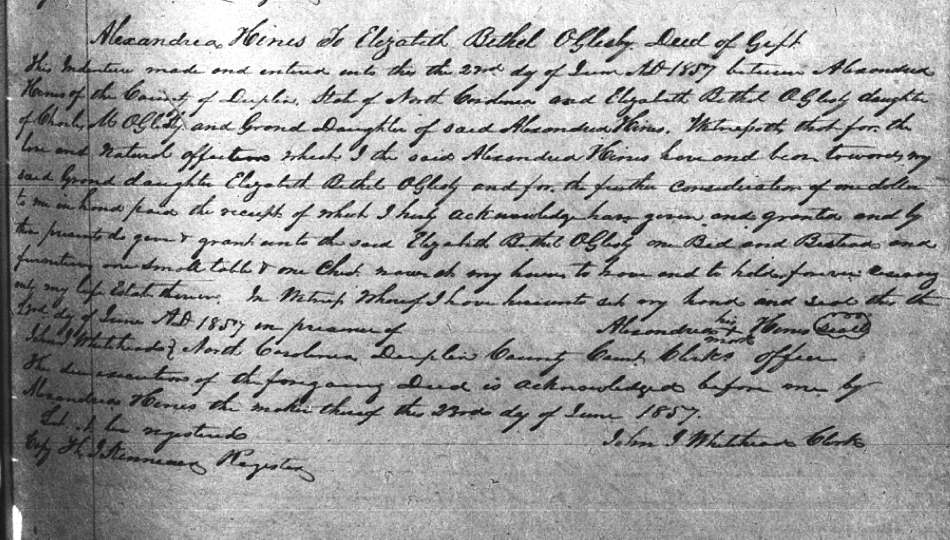 Alexandrea Hines To Elizabeth Bethel OGlesby Deed of Gift
This Indenture made and entered into this the 23rd dy of June AD 1857 between Alexandrea
Hines of the County of Duplin, State of North Carolina and Elizabeth Bethel OGlesby daughter
of Charles M OGlesby and Grand Daughter of said Alexandrea Hines. Witnesseth that for the
love and natural affection which I the said Alexandrea Hines have and bear towards my
said Grand daughter Elizabeth Bethel OGlesby and for the further consideration of one dollar
to me in hand paid the receipt of which I hereby acknowledge have given and granted and by
these presents do give & grant unto the said Elizabeth Bethel OGlesby one Bed and Bestead and
furniture one small table & one Chest now at my house to have and to hold forever
only my life Estate therein. In Witness Whereof I have hereunto set my hand and seal this the
23rd dy of June AD 1857 in presence of Alexandrea his + mark Hines seal
John J Whitehead } North Carolina Duplin County Court Clerks office
The due execution of the foregoing Deed is acknowledged before me by
Alexandrea Hines the maker thereof this 23rd dy of June 1857.
Let it be registered John J Whitehead Clerk
Register